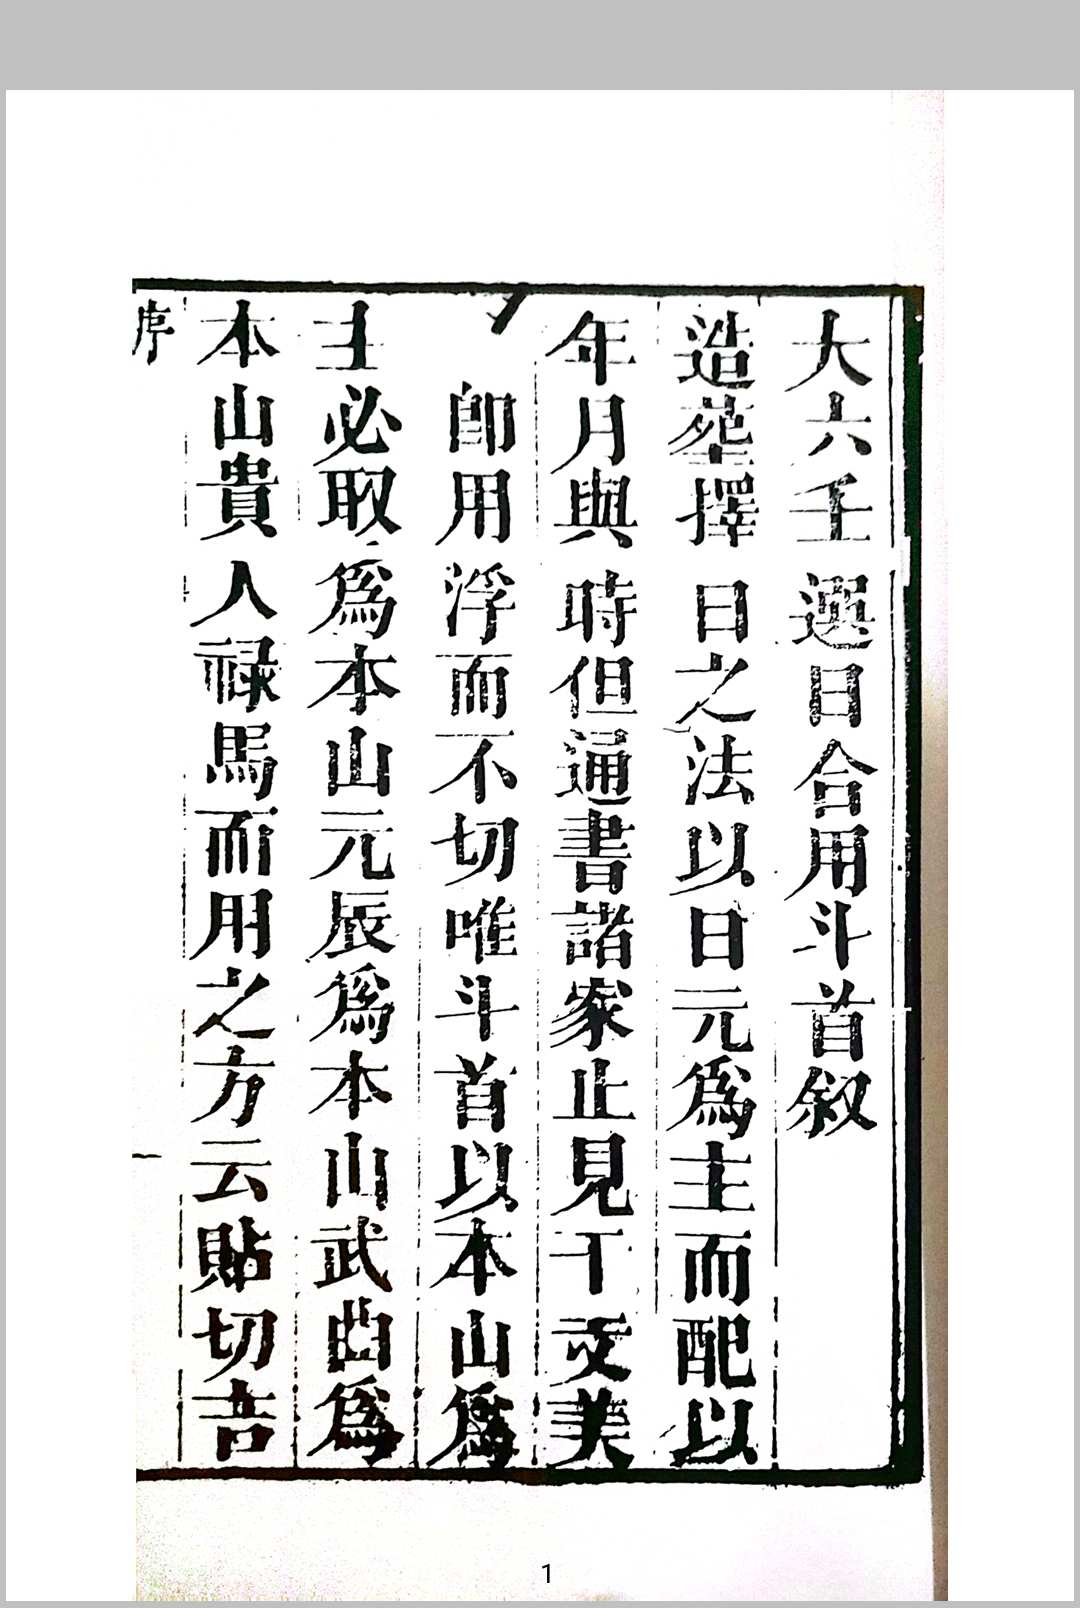 大六壬選日合用斗首叙
造塟擇日之法以日元爲主而配以
年月與時但通書諸家止見干支美
即用浮而不切唯斗首以本山爲
主必取爲本山元辰爲本山武曲爲
本山貴人禄馬而用之方云貼切吉
序
1